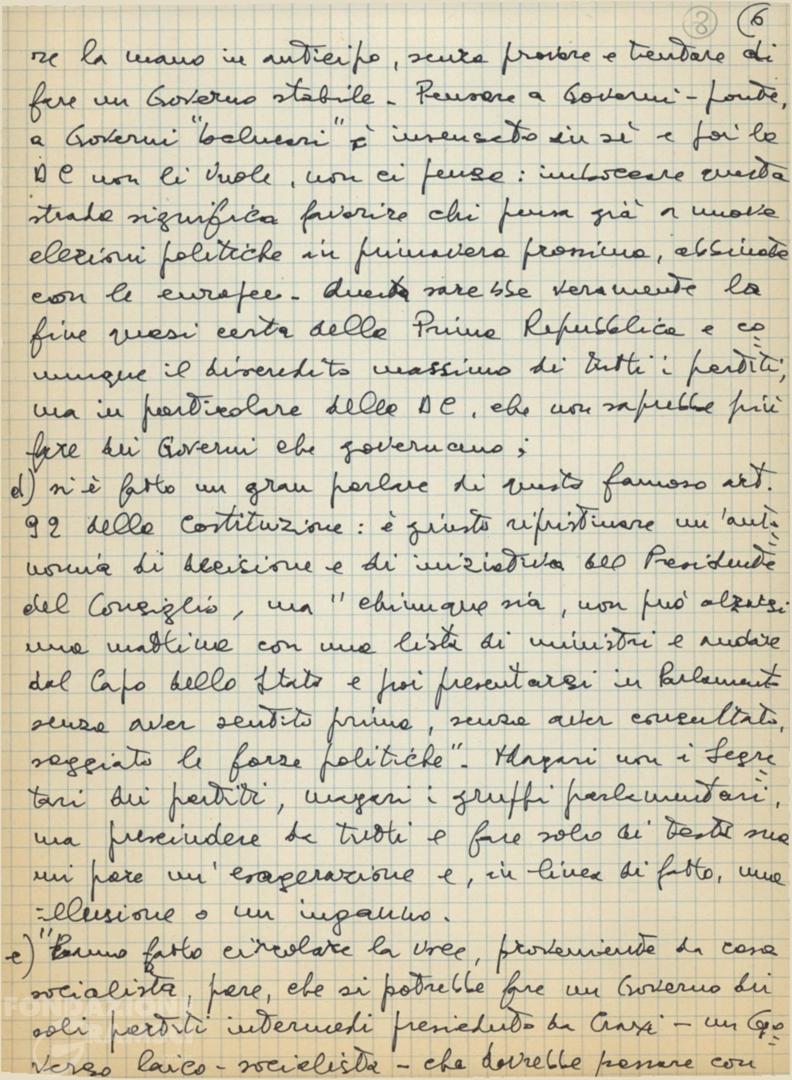 ⑧ 6
re la mano in anticipo, senza provare e tentare di
fare un Governo stabile - Pensare a Governi-ponte,
a Governi "balneari" è insensato in sè e poi la
DC non li vuole, non ci pensa: imboccare questa
strada significa favorire chi pensa già a nuove
elezioni politiche in primavera prossima, abbinate
con le europee. Questa sarebbe veramente la
fine quasi certa della Prima Repubblica e co=
munque il discredito massimo di tutti i partiti,
ma in particolare della DC, che non saprebbe più
fare dei Governi che governano;
d) si è fatto un gran parlare di questo famoso art.
92 della Costituzione: è giusto ripristinare un'auto=
nomia di decisione e di iniziativa del Presidente
del Consiglio, ma "chiunque sia, non può alzarsi
una mattina con una lista di ministri e andare
dal Capo dello Stato e poi presentarsi in Parlamento
senza aver sentito prima, senza aver consultato,
saggiato le forze politiche". Magari non i Segre=
tari dei partiti, magari i gruppi parlamentari,
ma prescindere da tutti e fare solo di testa sua
mi pare un'esagerazione e, in linea di fatto, una
illusione o un inganno.
e) "Hanno fatto circolare la voce, proveniente da casa
socialista, pare, che si potrebbe fare un Governo dei
soli partiti intermedi presieduto da Craxi - un Go=
verno laico-socialista - che dovrebbe passare con